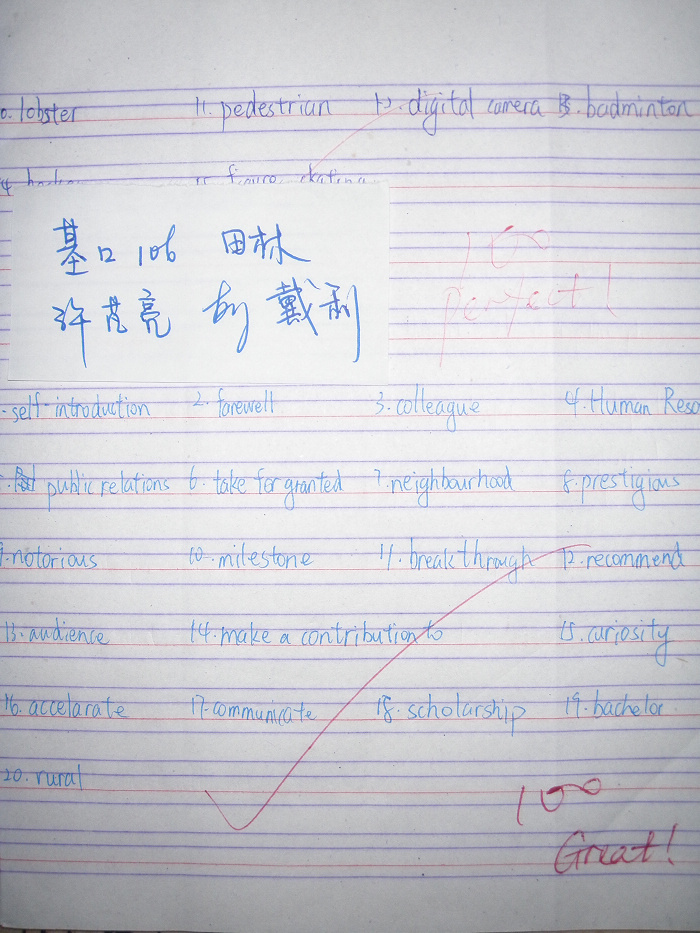 0. lobster 11. pedestrian 12. digital camera 13. badminton
figure skating
基口 106 田林
许芃亮 by 戴利
100
perfect!
self-introduction 2. farewell 3. colleague 4. Human Reso
public relations 6. take for granted 7. neighbourhood 8. prestigious
9. notorious 10. milestone 11. breakthrough 12. recommend
13. audience 14. make a contribution to 15. curiosity
16. accelarate 17. communicate 18. scholarship 19. bachelor
20. rural
100
Great!